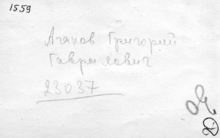 1559
Агапов Григорий
Гаврилович
23037